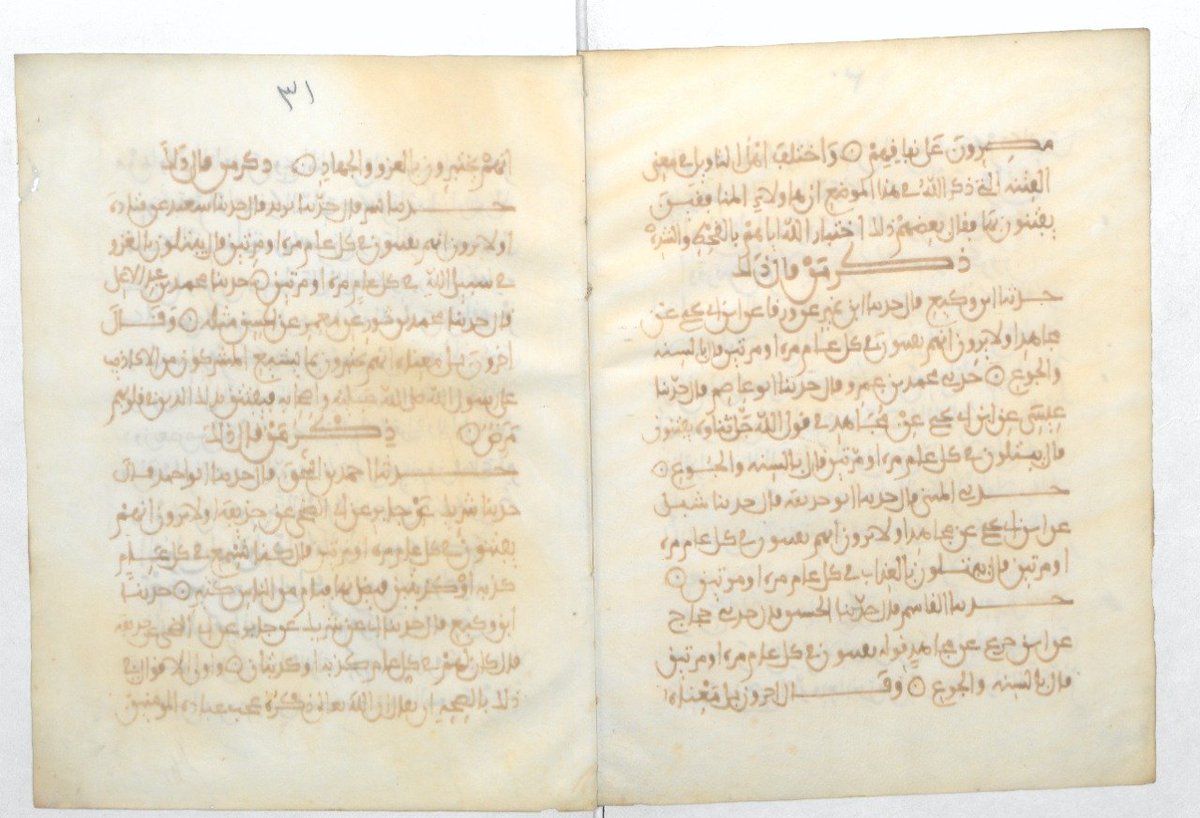 مصرون على نفاقهم واختلف أهل التأويل في معنى
الفتنة التي ذكر الله في هذا الموضع أن هاولاء المنافقين
يفتنون بها فقال بعضهم ذلك اختبار الله اياهم بالقحط والشدة
ذكر من قال ذلك
حدثنا ابن وكيع قال حدثنا ابن نمير عن ورقا عن ابن ابي نجيح عن
مجاهد اولا يرون انهم يفتنون في كل عام مرة او مرتين قال بالسنة
والجوع حدثني محمد بن عمرو قال حدثنا ابو عاصم قال حدثنا
عيسى عن ابن ابي نجيح عن مجاهد في قول الله جل ثناوه يفتنون
قال يبتلون في كل عام مرة او مرتين قال بالسنة والجوع
حدثني المثنى قال حدثنا ابو حذيفة قال حدثنا شبل
عن ابن ابي نجيح عن مجاهد اولا يرون انهم يفتنون في كل عام مرة
او مرتين قال يبتلون بالعذاب في كل عام مرة او مرتين
حدثنا القاسم قال حدثنا الحسين قال حدثني حجاج
عن ابن جريج عن مجاهد قوله يفتنون في كل عام مرة او مرتين
قال بالسنة والجوع وقال اخرون بل معناه
٣١
انهم يختبرون بالغزو والجهاد ذكر من قال ذلك
حدثنا بشر قال حدثنا يزيد قال حدثنا سعيد عن قتادة
اولا يرون انهم يفتنون في كل عام مرة او مرتين قال يبتلون بالغزو
في سبيل الله في كل عام مرة او مرتين حدثنا محمد بن عبد الاعلى
قال حدثنا محمد بن ثور عن معمر عن الحسن مثله وقال
اخرون بل معناه انهم يختبرون بما يشيع المشركون من الاكاذيب
على رسول الله صلى الله عليه واصحابه فيفتتن بذلك الذين في قلوبهم
مرض ذكر من قال ذلك
حدثنا احمد بن اسحق قال حدثنا ابو احمد قال
حدثنا شريك عن جابر عن ابي الضحى عن حذيفة اولا يرون انهم
يفتنون في كل عام مرة او مرتين قال كنا نسمع في كل عام
كذبة او كذبتين فيضل بها فئام من الناس كثير حدثنا
ابن وكيع قال حدثنا ابي عن شريك عن جابر عن ابي الضحى عن حذيفة
قال كان لهم في كل عام كذبة او كذبتان واولى الاقوال في
ذلك بالصحة ان يقال ان الله تعالى ذكره عجب عباده المومنين